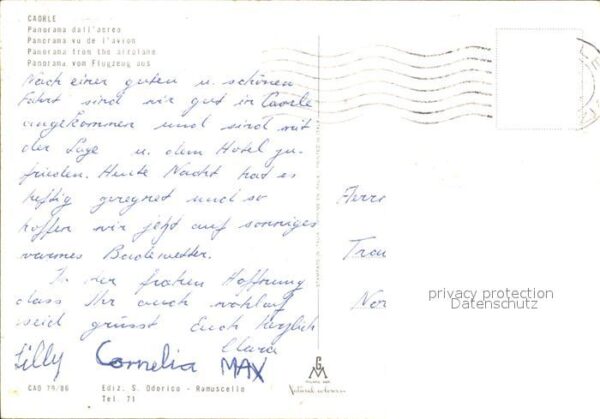 CAORLE
Panorama dall'aereo
Panorama vu de l'avion
Panorama from the aeroplane
Panorama vom Flugzeug aus
Nach einer guten u. schönen
Fahrt sind wir gut in Caorle
angekommen und sind mit
der Lage u. dem Hotel zu-
frieden. Heute Nacht hat es
heftig geregnet und so
hoffen wir jetzt auf sonniges
warmes Badewetter.
In der frohen Hoffnung
dass Ihr auch wohlauf
seid grüsst Euch herzlich
Clara
Lilly Cornelia MAX
CAO 79/86 Ediz. S. Odorico - Ramuscello
Tel. 71
Natural colour
Herre
Trau
Nor
privacy protection
Datenschutz